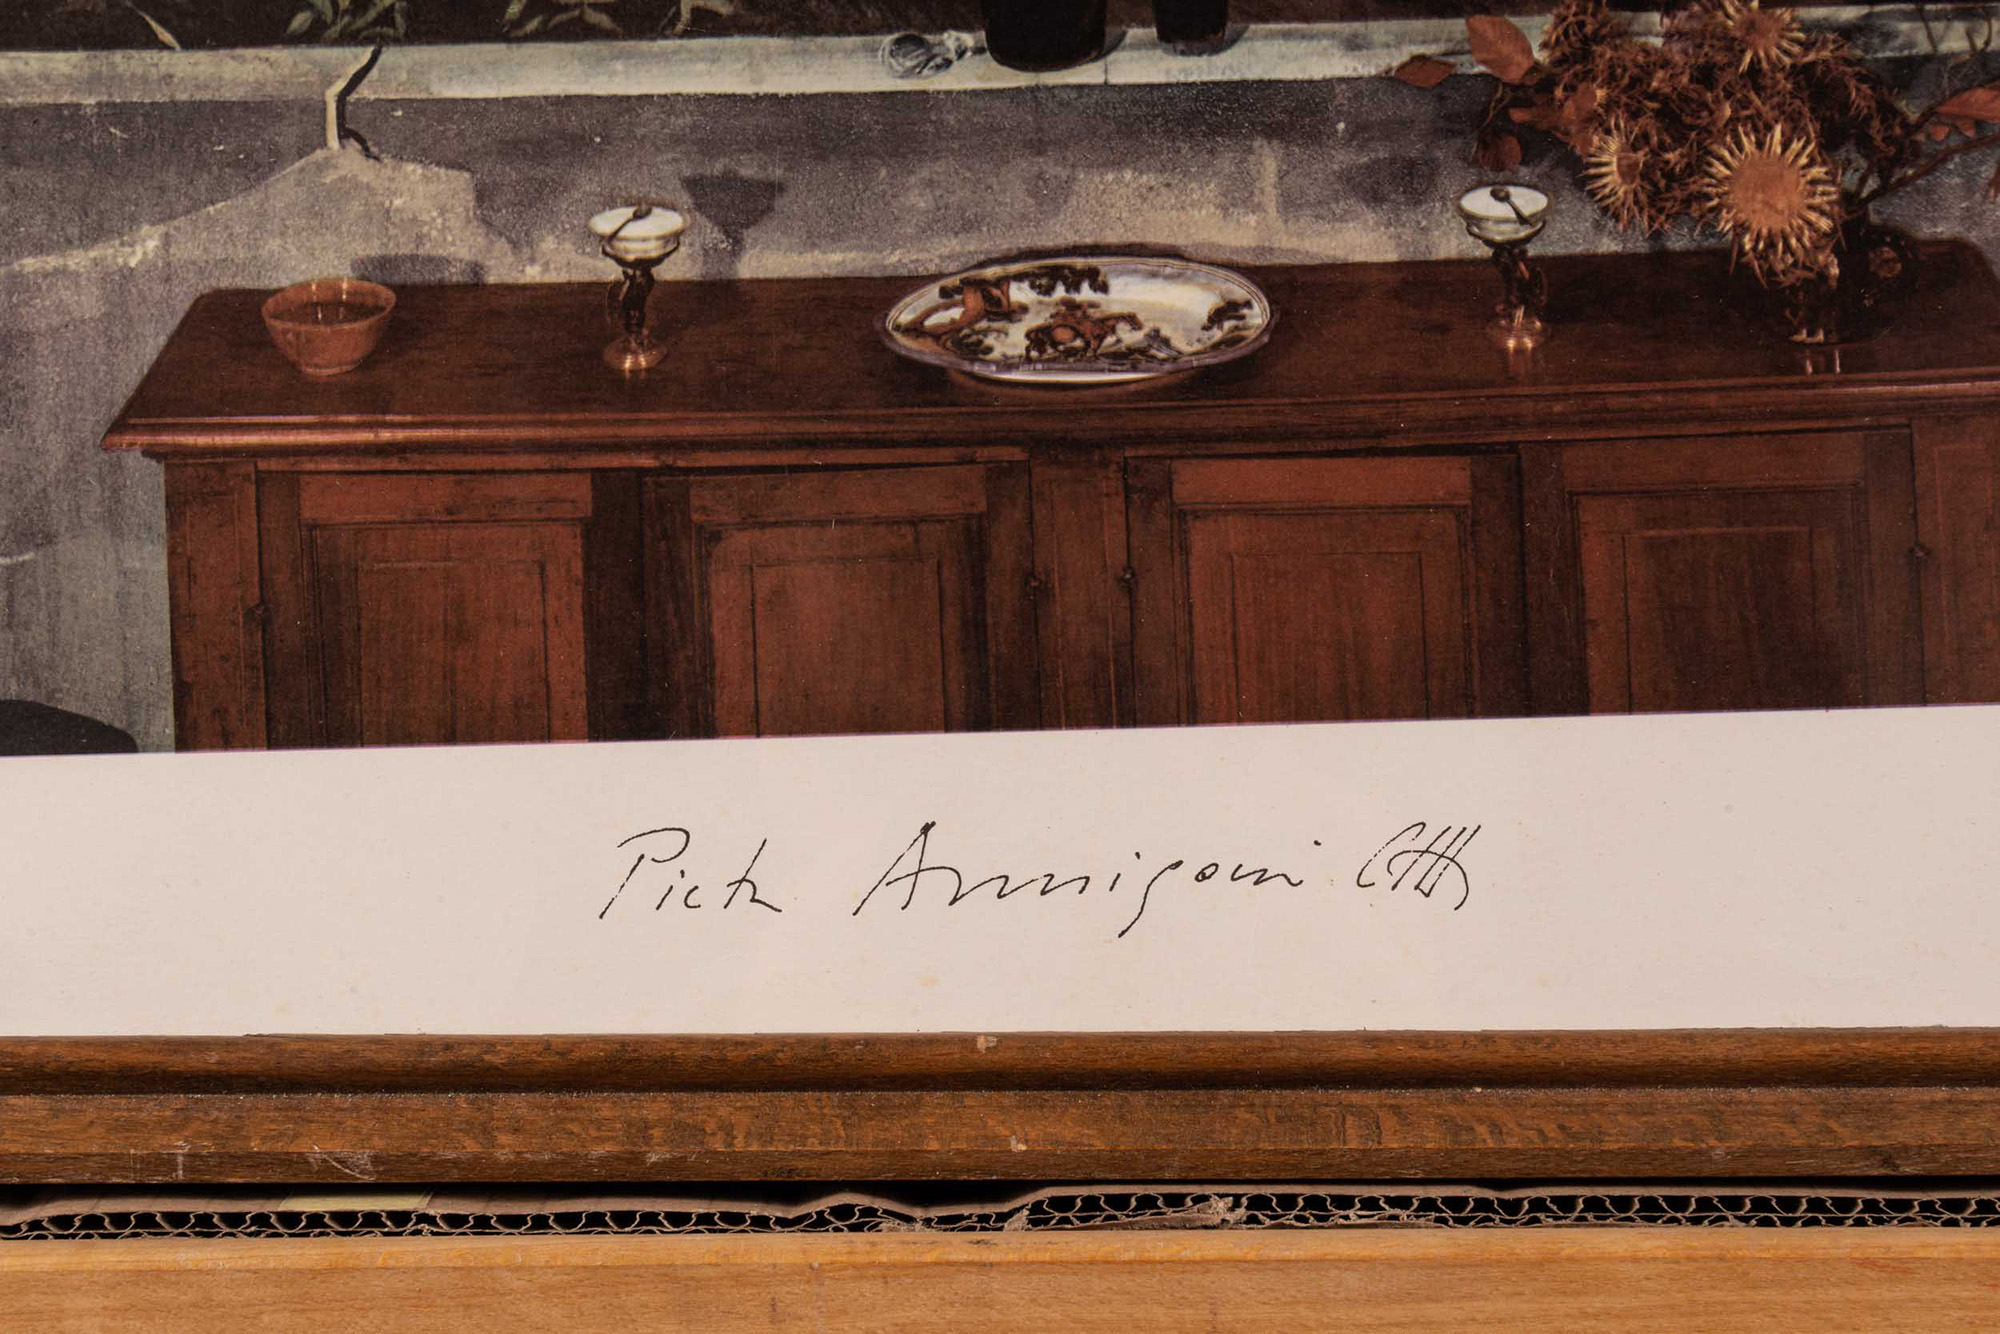 Pietro Annigoni